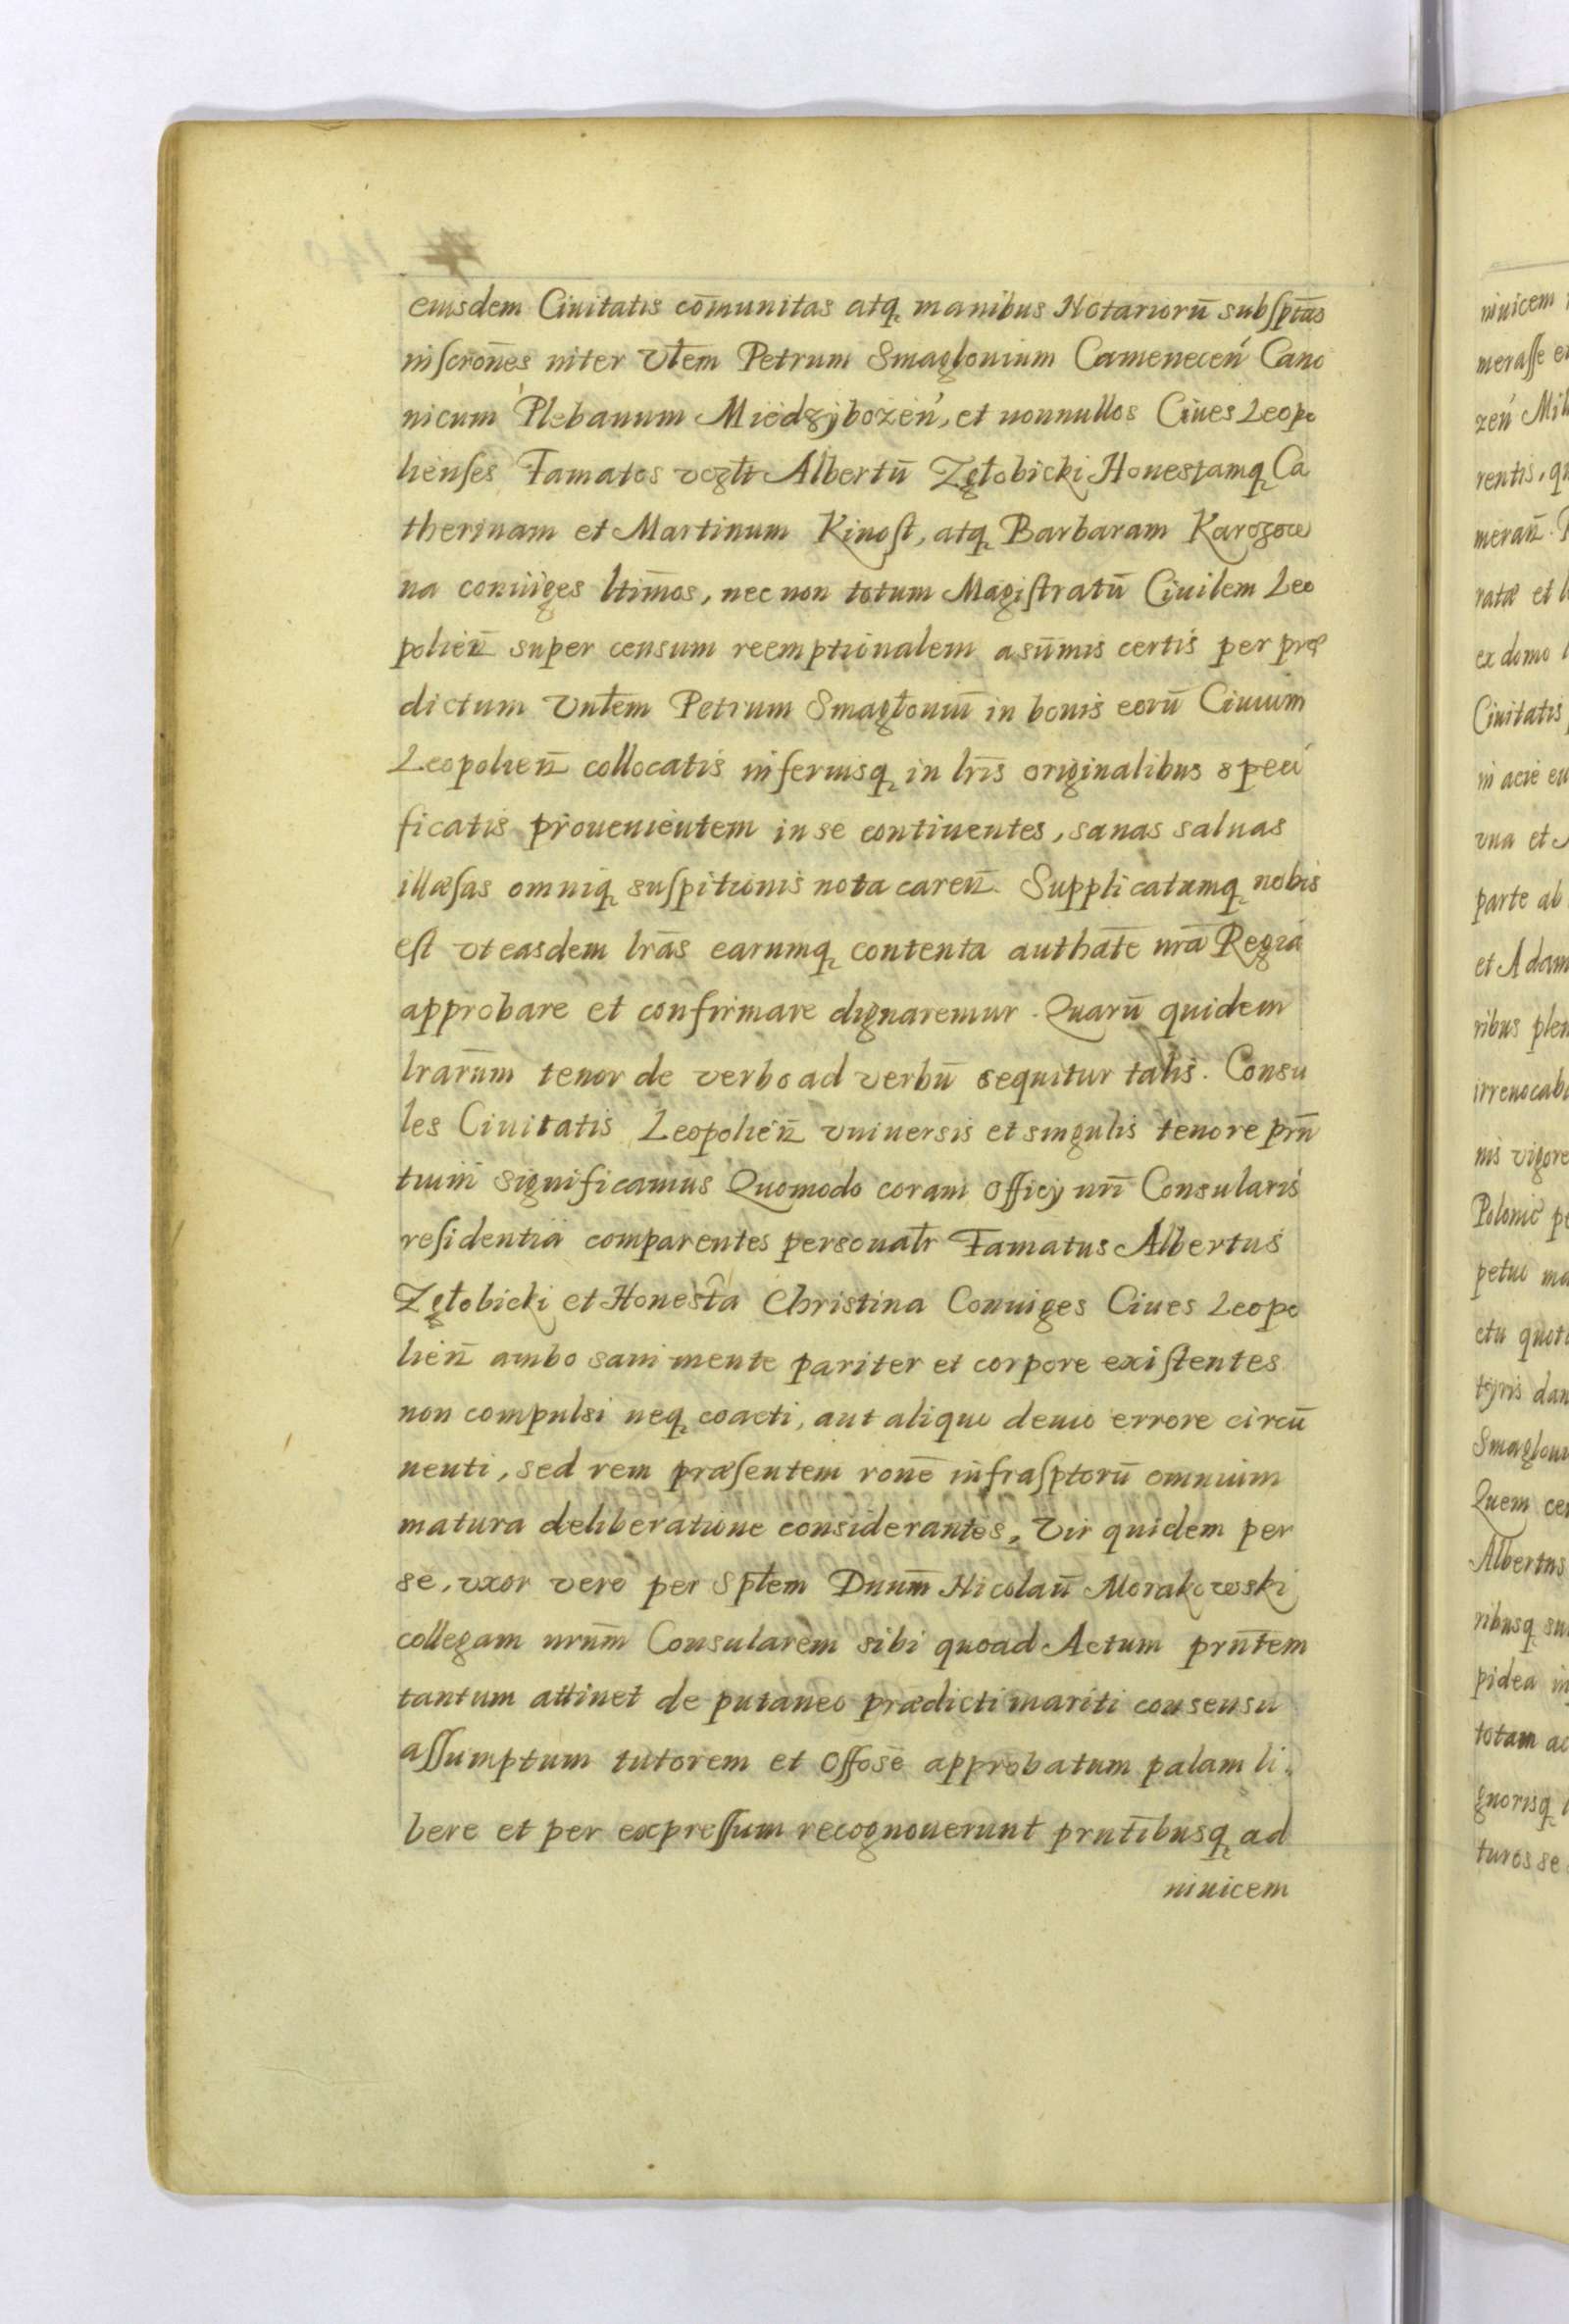 eiusdem Ciuitatis com̄unitas atq manibus Notarioru̅ subſptas
inſcrones inter Vtem Petrum Smaglouium Camenecen̄ Cano
nicum Plebanum Miedzÿbozen̄, et nonnullos Ciues Leopo
lienſes Famatos vczlt Albertu̅ Zgłobicki Honestamq Ca
therinam et Martinum Kinoſt, atq Barbaram Karogow
na coniuges ltimos, nec non totum Magiſtratu̅ Ciuilem Leo
polien̄ super censum reemptionalem a sum̄is certis per præ
dictum Vntem Petrum Smagłouiu̅ in bonis eoru̅ Ciuium
Leopolien̄ collocatis inferiusq in lris originalibus speci
ficatis prouenientem in se continentes, sanas saluas
illæſas omniq suſpitionis nota caren̄. Supplicatumq nobis
eſt vt easdem lras earumq contenta authate nra̅ Regia
approbare et confirmare dignaremur. Quaru̅ quidem
lrarum tenor de verbo ad verbu̅ sequitur talis. Consu
les Ciuitatis Leopolien̄ vniuersis et singulis tenore prn̄
tium significamus Quomodo coram Officÿ nri̅ Consularis
reſidentia comparentes personalr Famatus Albertus
Zgłobicki et Honesta Christina Coniuges Ciues Leopo
lien̄ ambo sani mente pariter et corpore exiſtentes
non compulsi neq coacti, aut aliquo deuio errore circu̅
uenti, sed rem præſentem rone̅ infraſptoru̅ omnium
matura deliberatione considerantes, Vir quidem per
se, vxor vero per Sptem Dnum̄ Nicolau̅ Morakowski
collegam nrum̄ Consularem sibi quoad Actum prn̄tem
tantum attinet de putaneo prædicti mariti consensu
aſſumptum tutorem et Offose approbatum palam li⸗
bere et per expreſſum recognouerunt prntibusq ad
inuicem